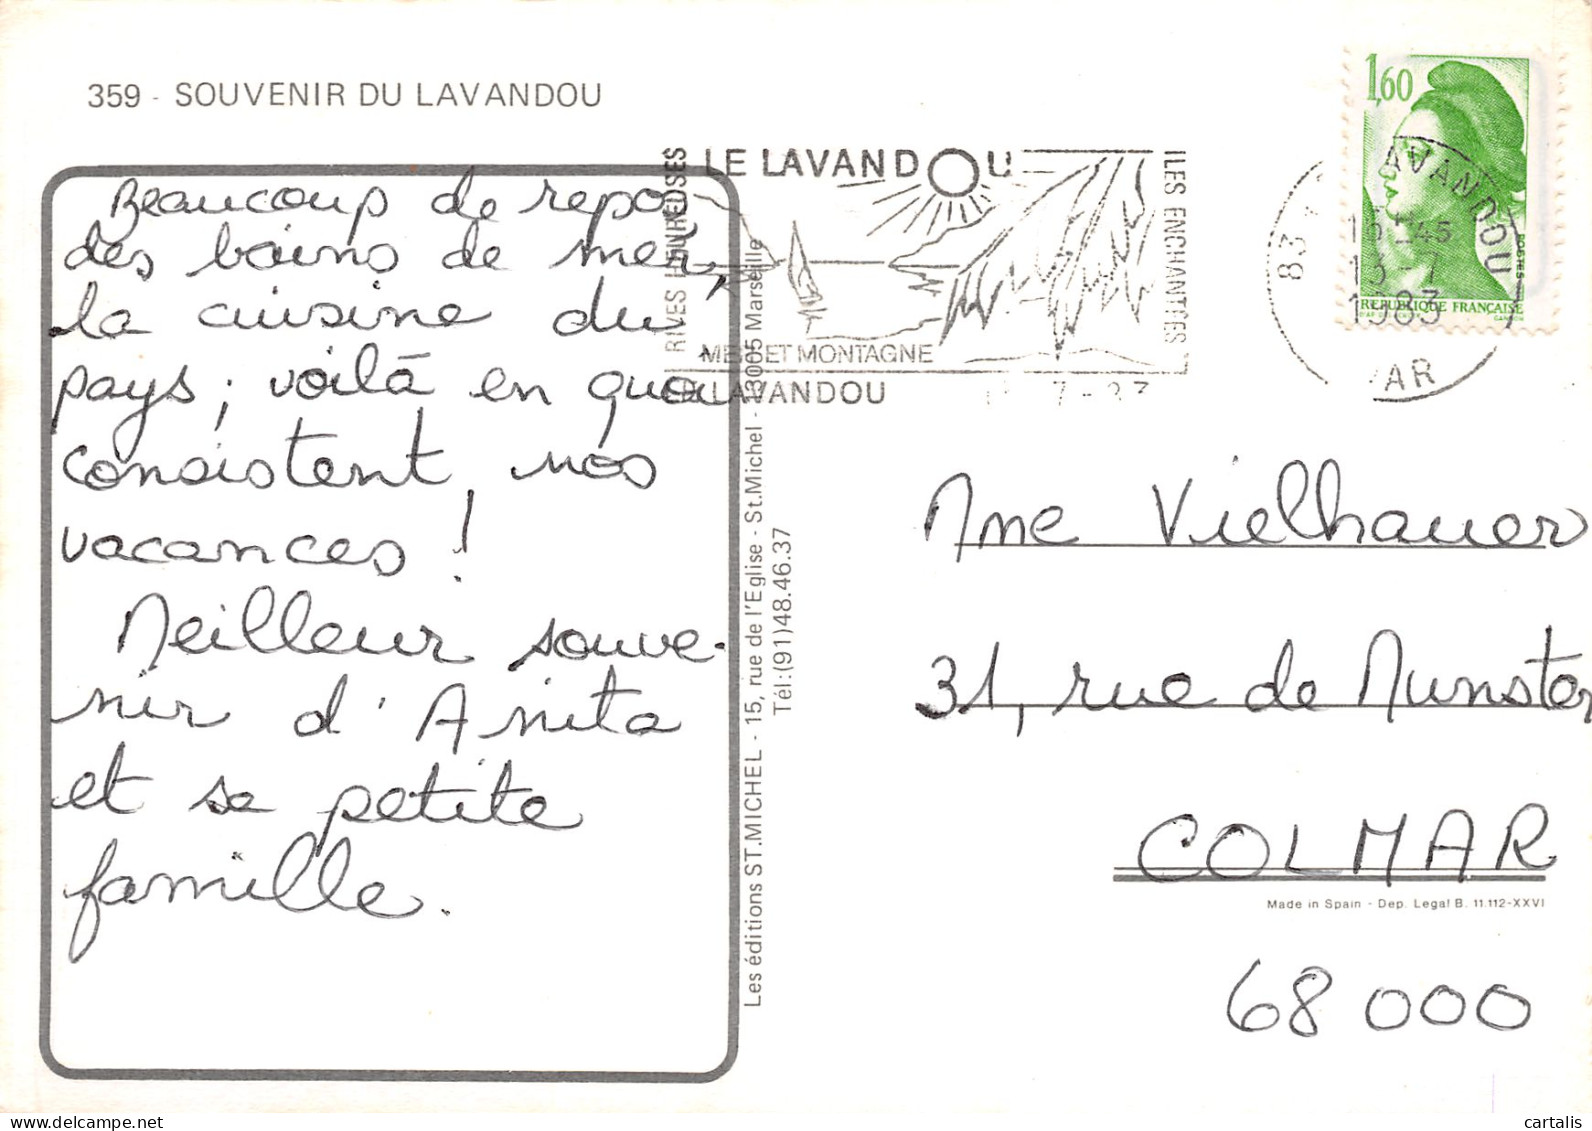 359 - SOUVENIR DU LAVANDOU
Beaucoup de repos
des bains de mer,
la cuisine du
pays ; voilà en quoi
consistent nos
vacances !
Meilleur souve-
nir d'Anita
et sa petite
famille.
Les éditions ST.MICHEL - 15, rue de l'Eglise - St.Michel - 13005 Marseille
Tél:(91)48.46.37
RIVES HEUREUSES
LE LAVANDOU
MER ET MONTAGNE
LE LAVANDOU
ILES ENCHANTEES
7-83
83
LAVANDOU
16H45
13-7
1983
VAR
1,60
POSTES
REPUBLIQUE FRANÇAISE
GANDON
Mme Vielhauer
31, rue de Munster
COLMAR
Made in Spain - Dep. Legal B. 11.112-XXVI
68 000
www.cartalis.com
cartalis